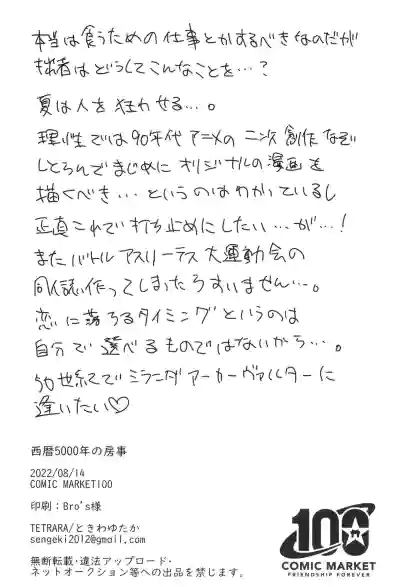 本当は食うための仕事とかするべきなのだが
拙者はどうしてこんなことを…?
夏は人を狂わせる…。
理性では90年代アニメの二次創作なぞ
しとらんでまじめにオリジナルの漫画を
描くべき…というのはわかっているし
正直これで打ち止めにしたい…が…!
またバトルアスリーテス大運動会の
同人誌作ってしまったらすいません…。
恋に落ちるタイミングというのは
自分で選べるものではないから…。
50世紀でミランダ アーカーヴァルターに
逢いたい♡
西暦5000年の房事
2022/08/14
COMIC MARKET100
印刷:Bro's様
TETRARA/ときわゆたか
sengeki2012@gmail.com
無断転載・違法アップロード・
ネットオークション等への出品を禁じます。
100
COMIC MARKET
FRIENDSHIP FOREVER